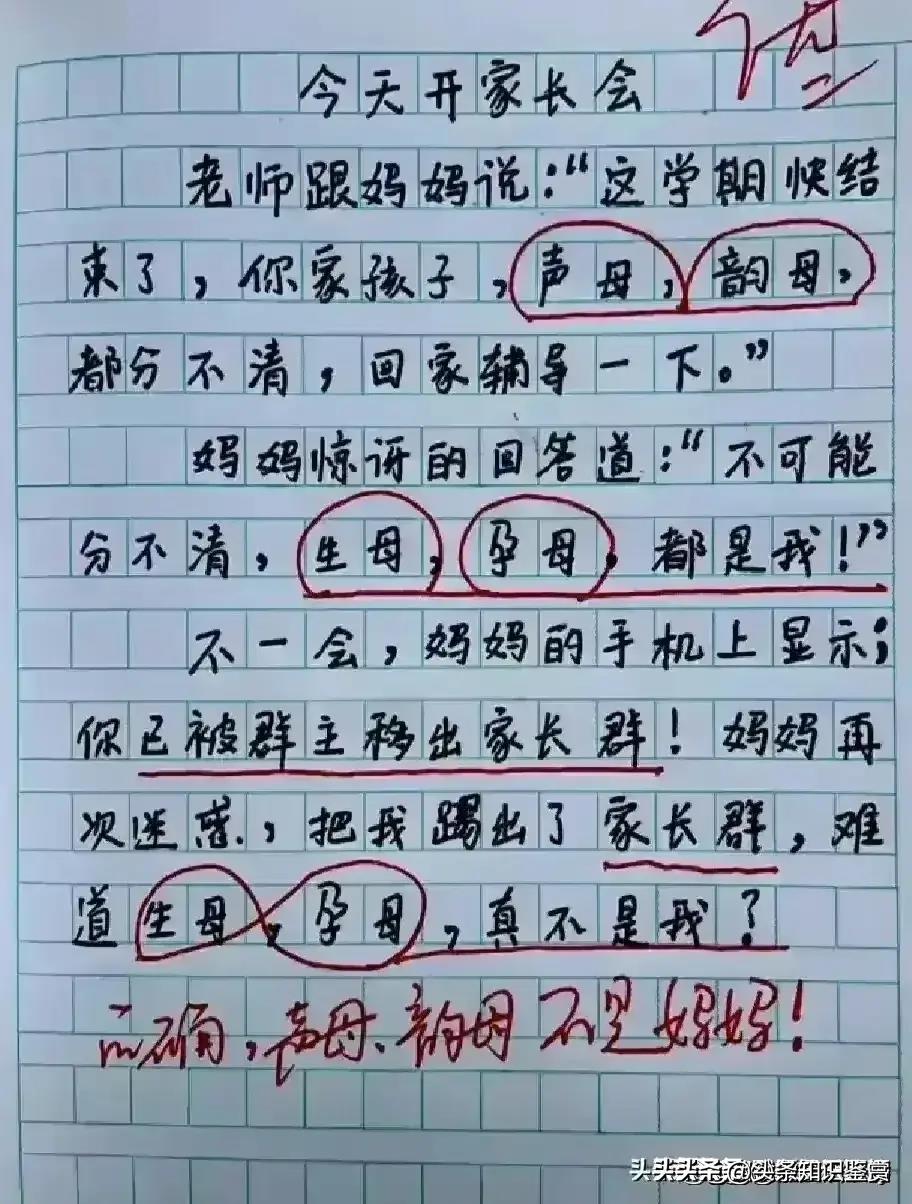 优
今天开家长会
老师跟妈妈说:“这学期快结
束了,你家孩子,声母,韵母,
都分不清,回家辅导一下。”
妈妈惊讶的回答道:“不可能
分不清,生母,孕母,都是我!”
不一会,妈妈的手机上显示;
你已被群主移出家长群!妈妈再
次迷惑,把我踢出了家长群,难
道生母,孕母,真不是我?
的确,声母、韵母不是妈妈!